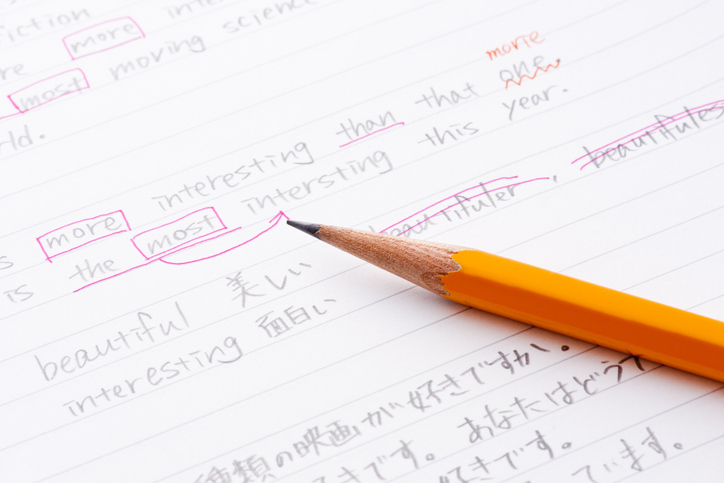 more
most moving science
rld.
morie
interesting than that one
is the most intersting this year.
more
beautifuler, beautifules
beautiful 美しい
interesting 面白い
種類の映画が好きですか。
きです。あなたはどうて
好きです。
ています。